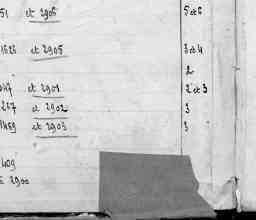 51 et 2906 5 et 6
1626 et 2905 3 et 4
2
047 et 2901 2 et 3
267 et 2902 3
1459 et 2903 3
409
2900